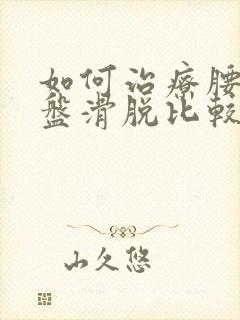 如何治療腰
盤滑脱比較
山久悠